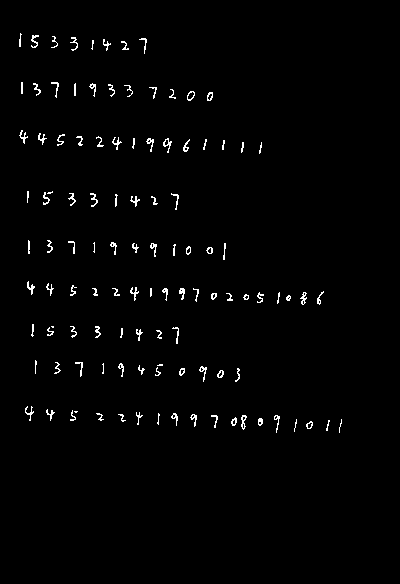 15331427
13719337200
44522419961111
15331427
13719491001
445224199702051086
15331427
13719450903
445224199708091011